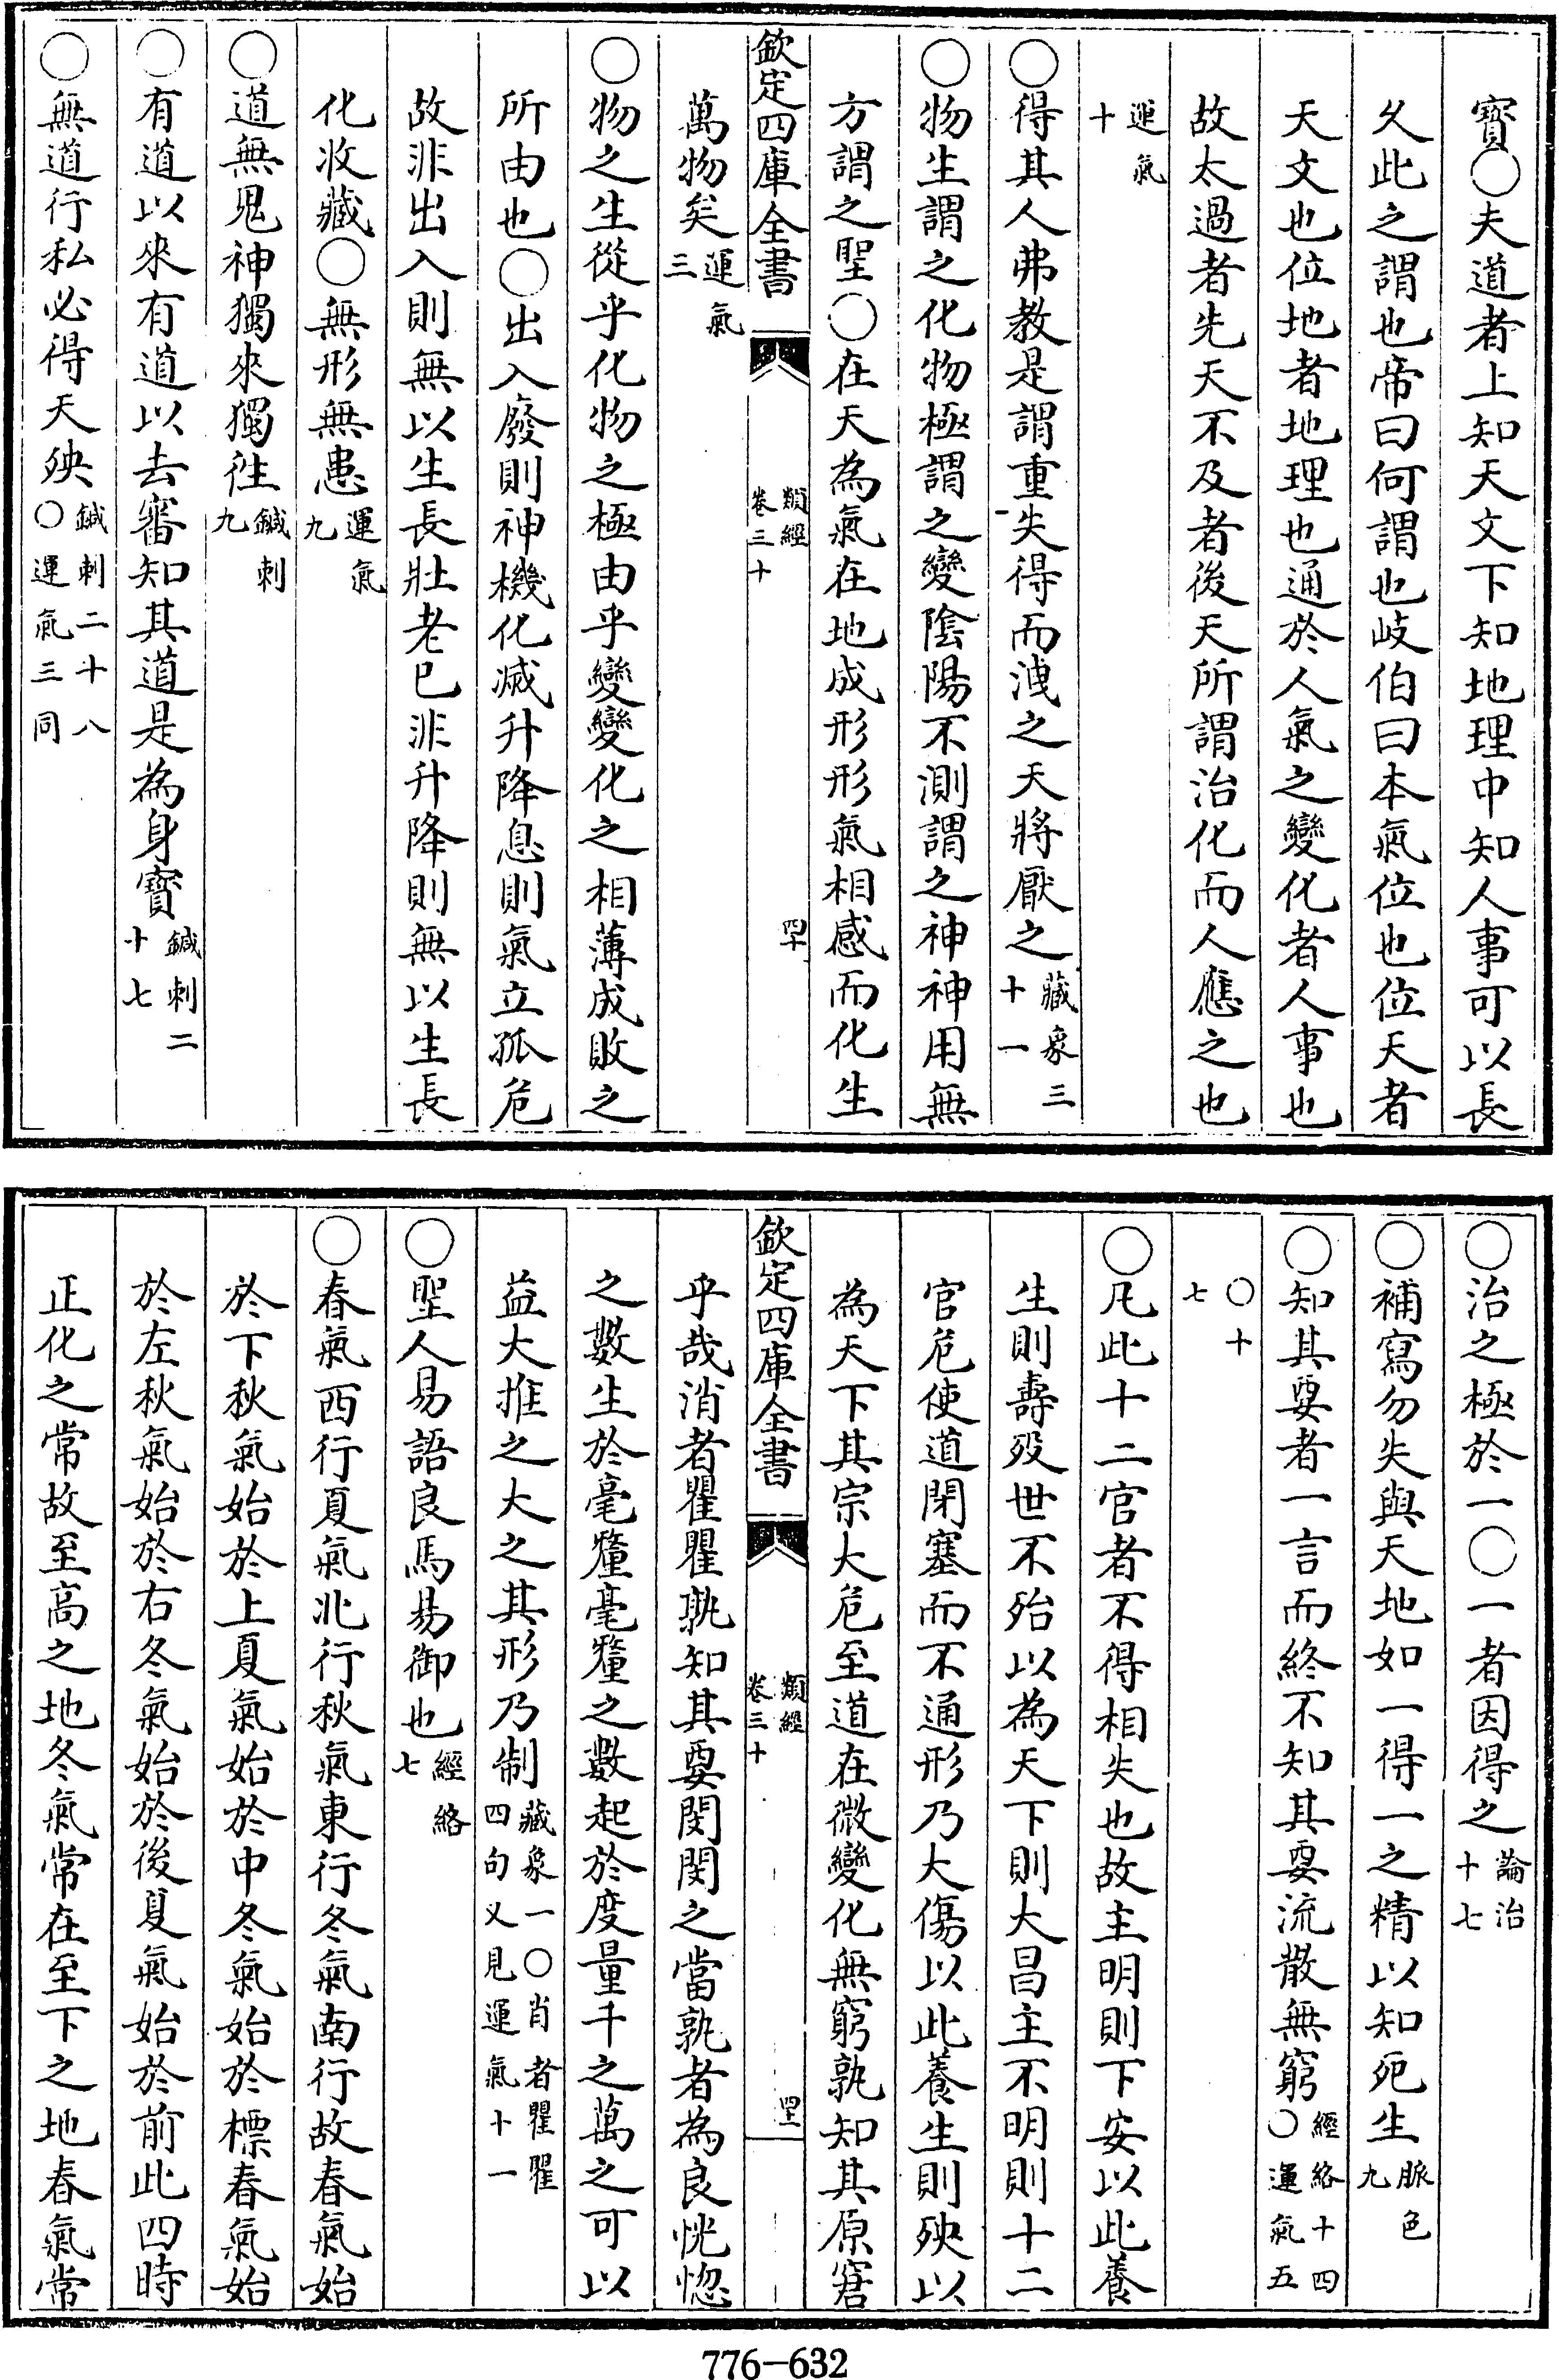 寶○夫道者上知天文下知地理中知人事可以長
久此之謂也帝曰何謂也岐伯曰本氣位也位天者
天文也位地者地理也通於人氣之變化者人事也
故太過者先天不及者後天所謂治化而人應之也
運氣十
○得其人弗教是謂重失得而洩之天將厭之藏象三十一
○物生謂之化物極謂之變陰陽不測謂之神神用無
方謂之聖○在天為氣在地成形形氣相感而化生
欽定四庫全書 類經卷三十 四十
萬物矣運氣三
○物之生從乎化物之極由乎變變化之相薄成敗之
所由也○出入廢則神機化滅升降息則氣立孤危
故非出入則無以生長壯老已非升降則無以生長
化收藏○無形無患運氣九
○道無鬼神獨來獨往鍼刺九
○有道以來有道以去審知其道是為身寶鍼刺二十七
○無道行私必得天殃鍼刺二十八○運氣三同
○治之極於一○一者因得之論治十七
○補寫勿失與天地如一得一之精以知死生脈色九
○知其要者一言而終不知其要流散無窮經絡十四○運氣五
○十七
○凡此十二官者不得相失也故主明則下安以此養
生則壽歿世不殆以為天下則大昌主不明則十二
官危使道閉塞而不通形乃大傷以此養生則殃以
為天下其宗大危至道在微變化無窮孰知其原窘
欽定四庫全書 類經卷三十 四十一
乎哉消者瞿瞿孰知其要閔閔之當孰者為良恍惚
之數生於毫釐毫釐之數起於度量千之萬之可以
益大推之大之其形乃制藏象一○肖者瞿瞿四句又見運氣十一
○聖人易語良馬易御也經絡七
○春氣西行夏氣北行秋氣東行冬氣南行故春氣始
於下秋氣始於上夏氣始於中冬氣始於標春氣始
於左秋氣始於右冬氣始於後夏氣始於前此四時
正化之常故至高之地冬氣常在至下之地春氣常
776-632